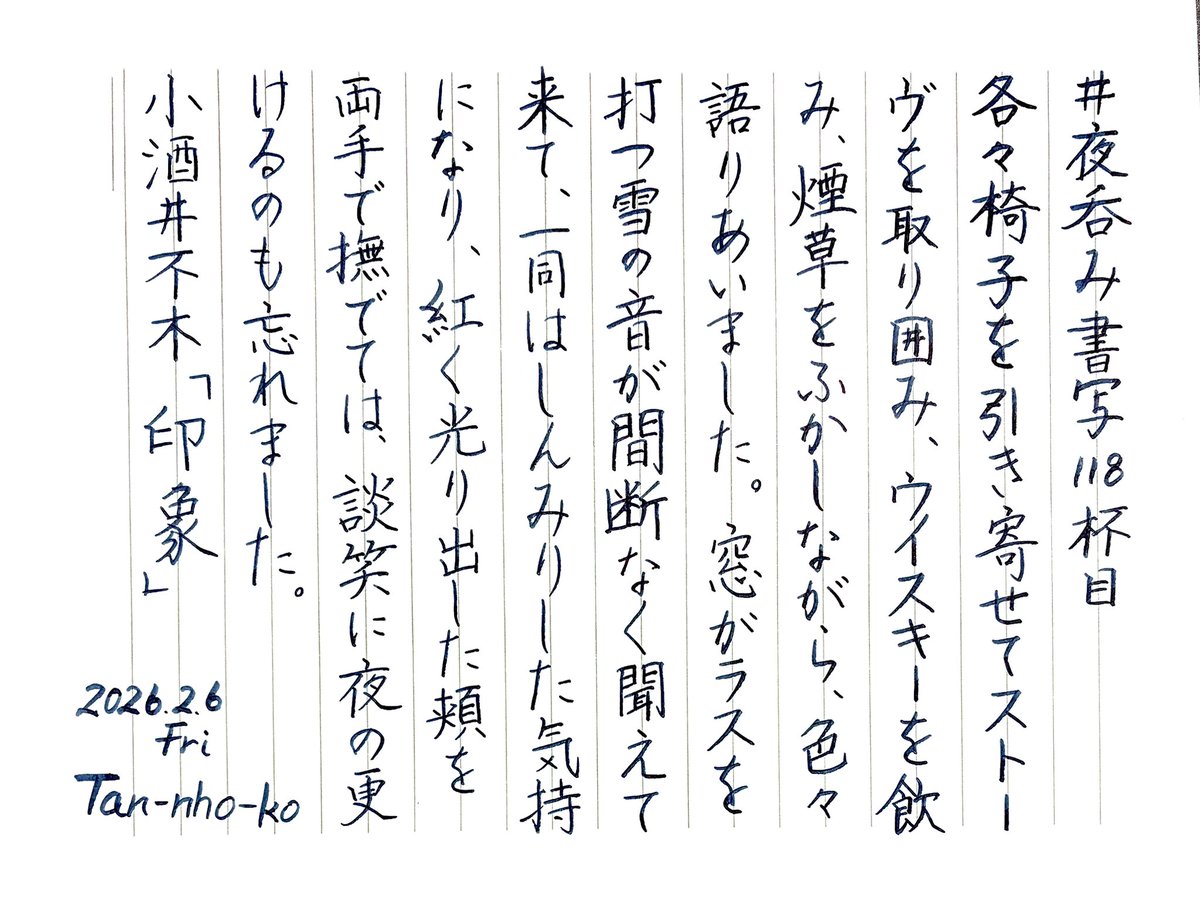 #夜呑み書写118杯目
各々椅子を引き寄せてストー
ヴを取り囲み、ウイスキーを飲
み、煙草をふかしながら、色々
語りあいました。窓がラスを
打つ雪の音が間断なく聞えて
来て、一同はしんみりした気持
になり、紅く光り出した頬を
両手で撫でては、談笑に夜の更
けるのも忘れました。
小酒井不木「印象」
2026.2.6
Fri
Tan-nho-ko